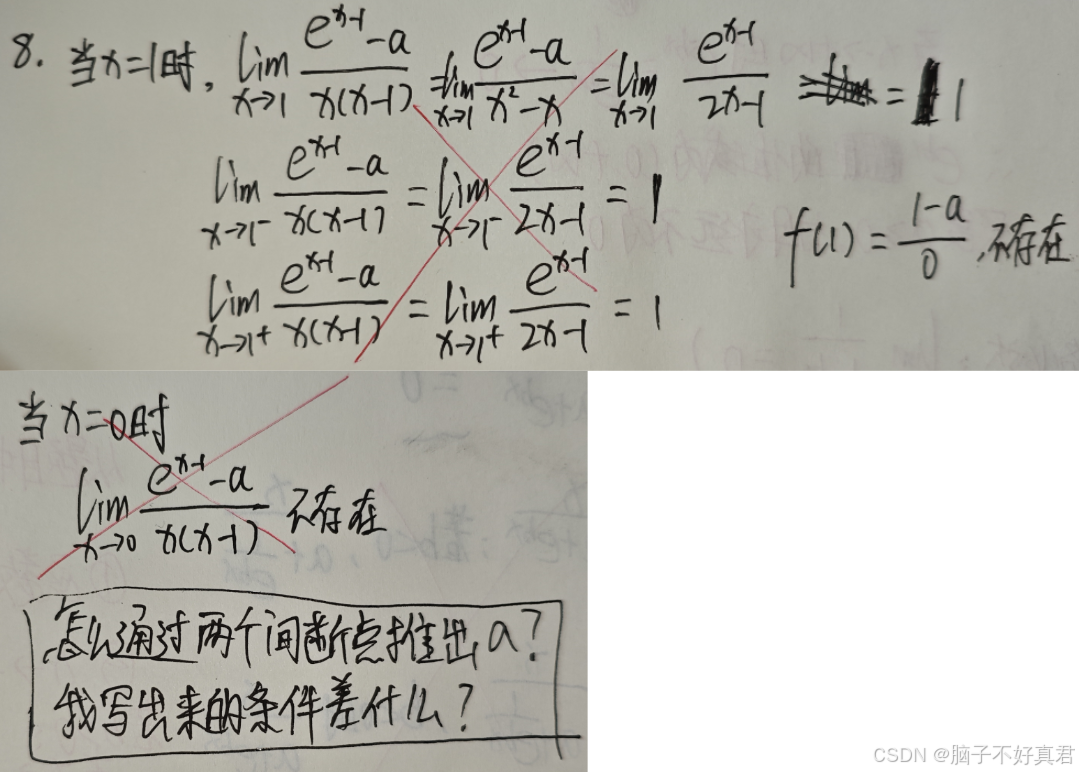 8. 当x=1时, lim x→1 (e^(x-1) - a)/(x(x-1)) = lim x→1 (e^(x-1) - a)/(x² - x) = lim x→1 e^(x-1)/(2x-1) = 1
lim x→1⁻ (e^(x-1) - a)/(x(x-1)) = lim x→1⁻ e^(x-1)/(2x-1) = 1
f(1) = (1-a)/0, 不存在
lim x→1⁺ (e^(x-1) - a)/(x(x-1)) = lim x→1⁺ e^(x-1)/(2x-1) = 1
当 x=0时
lim x→0 (e^(x-1) - a)/(x(x-1)) 不存在
怎么通过两个间断点推出a?
我写出来的条件差什么?
CSDN @脑子不好真君